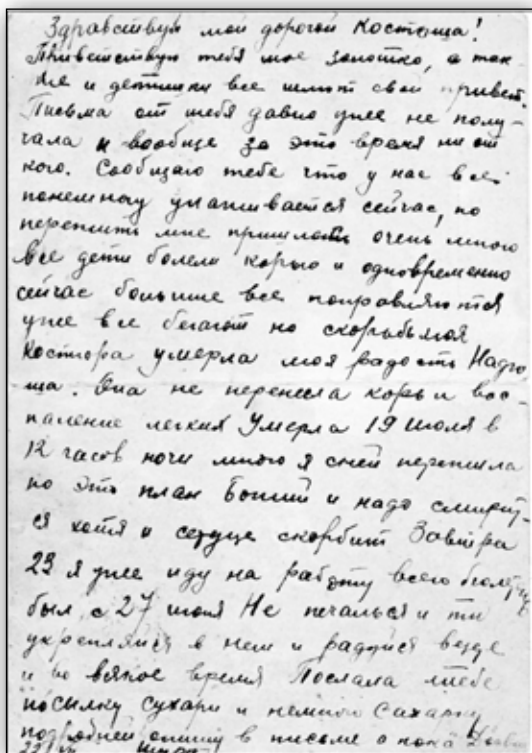 Здравствуй мой дорогой Костюша!
Приветствую тебя мое золотко, а так-
же и детишки все шлют свой привет
Письма от тебя давно уже не полу-
чала и вообще за это время ни от
кого. Сообщаю тебе что у нас все
понемногу улаживается сейчас, но
пережить мне пришлось очень много
все дети болели корью и одновременно
сейчас больше все поправляются
уже все бегают но скорбь моя
умерла моя радость Надю-
ша. Она не перенесла корь и вос-
паление легких Умерла 19 июля в
12 часов ночи много я с ней пережила
но это план Божий и надо смирит-
ся хотя и сердце скорбит Завтра
23 я уже иду на работу всего
был с 27 июня Не печалься и ты
укрепляйся в нем и радуйся везде
и во всякое время Послала тебе
посылку сухари и немного сахарку
подробней опишу в письме а пока